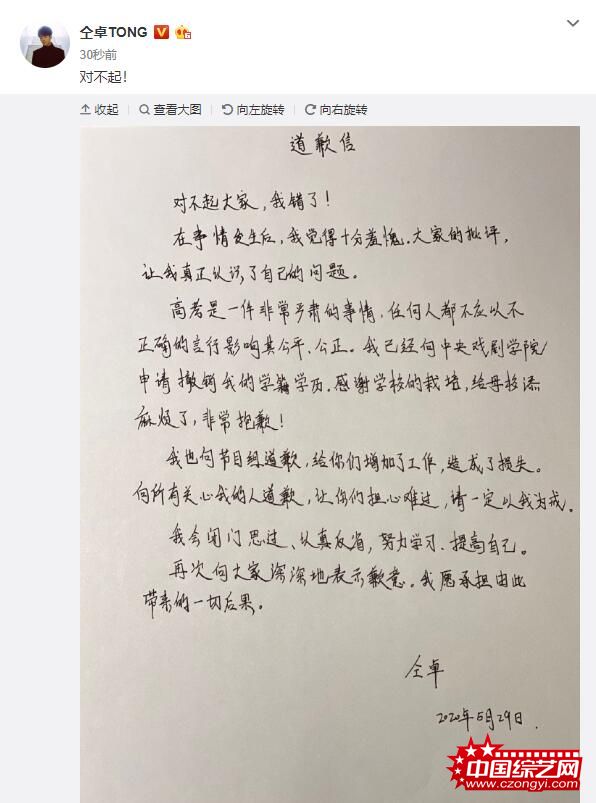 仝卓TONG
30秒前
对不起!
收起 查看大图 向左旋转 向右旋转
道歉信
对不起大家,我错了!
在事情发生后,我觉得十分羞愧。大家的批评,
让我真正认识了自己的问题。
高考是一件非常严肃的事情,任何人都不应以不
正确的言行影响其公平、公正。我已经向中央戏剧学院
申请撤销我的学籍学历。感谢学校的栽培,给母校添
麻烦了,非常抱歉!
我也向节目组道歉,给你们增加了工作,造成了损失。
向所有关心我的人道歉,让你们担心难过,请一定以我为戒。
我会闭门思过、认真反省,努力学习、提高自己。
再次向大家深深地表示歉意。我愿承担由此
带来的一切后果。
仝卓
2020年5月29日.
中国综艺网
www.czongyi.com